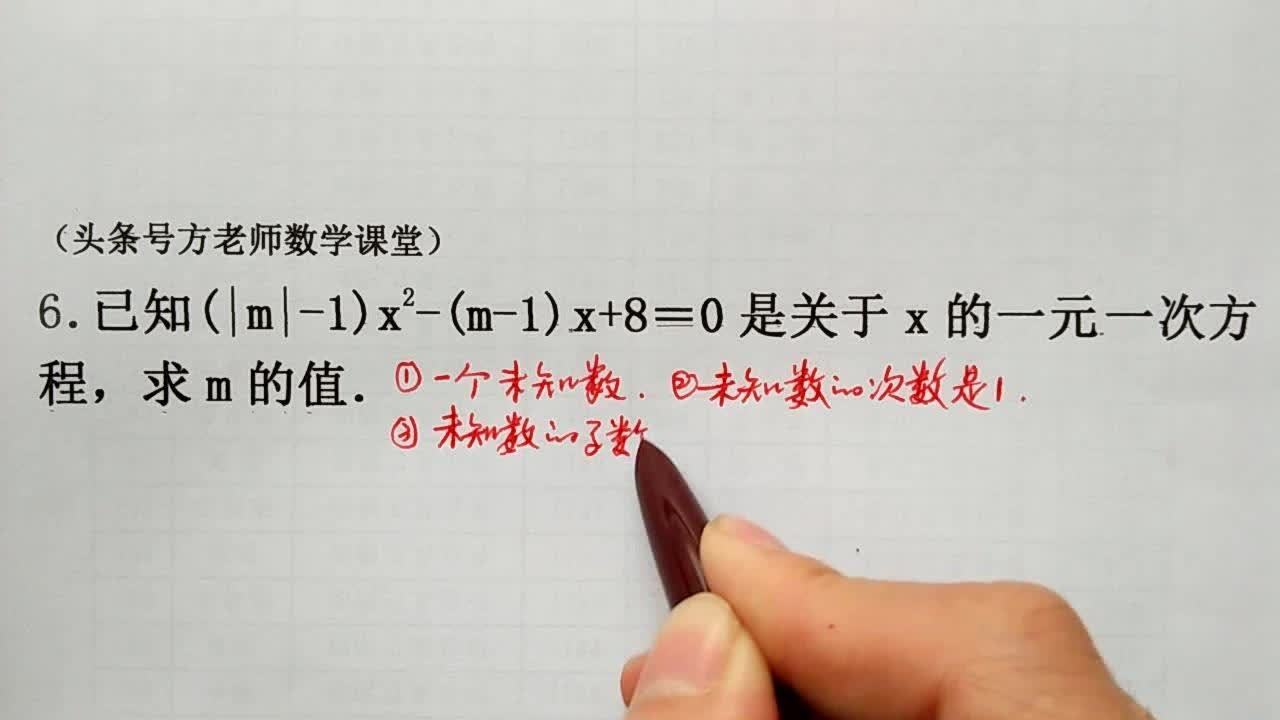 （头条号方老师数学课堂）
6.已知(|m|-1)x²-(m-1)x+8=0是关于x的一元一次方
程，求m的值.①一个未知数.②未知数的次数是1.
③未知数的系数